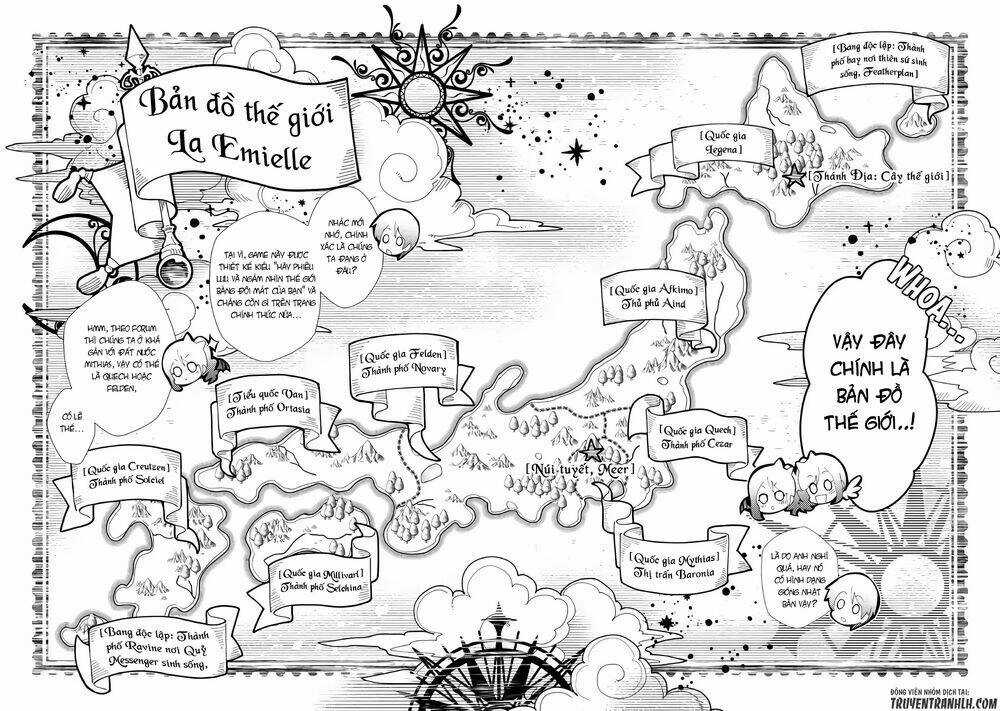 Bản đồ thế giới
La Emielle
[Bang độc lập: Thành
phố bay nơi thiên sứ sinh
sống, Featherplan]
[Quốc gia
Legena]
[Thánh Địa: Cây thế giới]
NHẮC MỚI
NHỚ, CHÍNH
XÁC LÀ CHÚNG
TA ĐANG Ở
ĐÂU?
TẠI VÌ, GAME NÀY ĐƯỢC
THIẾT KẾ KIỂU "HÃY PHIÊU
LƯU VÀ NGẮM NHÌN THẾ GIỚI
BẰNG ĐÔI MẮT CỦA BẠN" VÀ
CHẲNG CÒN GÌ TRÊN TRANG
CHÍNH THỨC NỮA...
HMM, THEO FORUM
THÌ CHÚNG TA Ở KHÁ
GẦN VỚI ĐẤT NƯỚC
MITHIAS, VẬY CÓ THỂ
LÀ QUECH HOẶC
FELDEN,
CÓ LẼ
THẾ...
WHOA...
VẬY ĐÂY
CHÍNH LÀ
BẢN ĐỒ
THẾ GIỚI..!
[Quốc gia Afkimo]
Thủ phủ Aind
[Quốc gia Felden]
Thành phố Novary
[Tiểu quốc Van]
Thành phố Ortasia
[Quốc gia Quech]
Thành phố Cezar
[Núi tuyết, Meer]
[Quốc gia Creutzen]
Thành phố Solciel
[Quốc gia Millivari]
Thành phố Selchina
[Quốc gia Mythias]
Thị trấn Baronia
LÀ DO ANH NGHĨ
QUÁ, HAY NÓ
CÓ HÌNH DẠNG
GIỐNG NHẬT
BẢN VẬY?
[Bang độc lập: Thành
phố Ravine nơi Quỷ
Messenger sinh sống,
ĐỘNG VIÊN NHÓM DỊCH TẠI:
TRUYENTRANHLH.COM